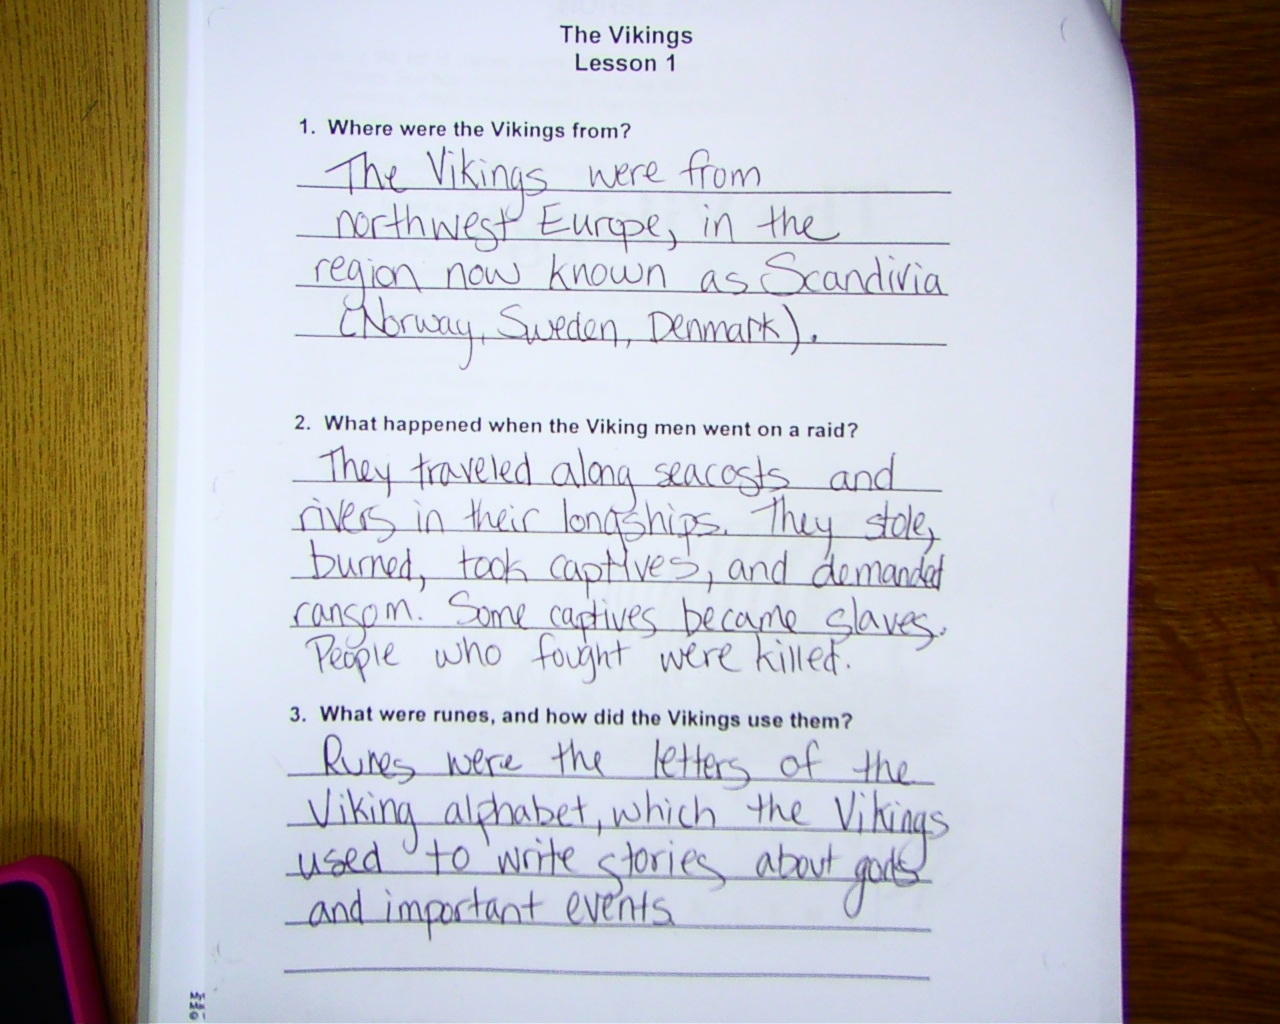 The Vikings
Lesson 1
1. Where were the Vikings from?
The Vikings were from
northwest Europe, in the
region now known as Scandivia
(Norway, Sweden, Denmark).
2. What happened when the Viking men went on a raid?
They traveled along seacosts and
rivers in their longships. They stole,
burned, took captives, and demanded
ransom. Some captives became slaves.
People who fought were killed.
3. What were runes, and how did the Vikings use them?
Runes were the letters of the
Viking alphabet, which the Vikings
used to write stories about gods
and important events